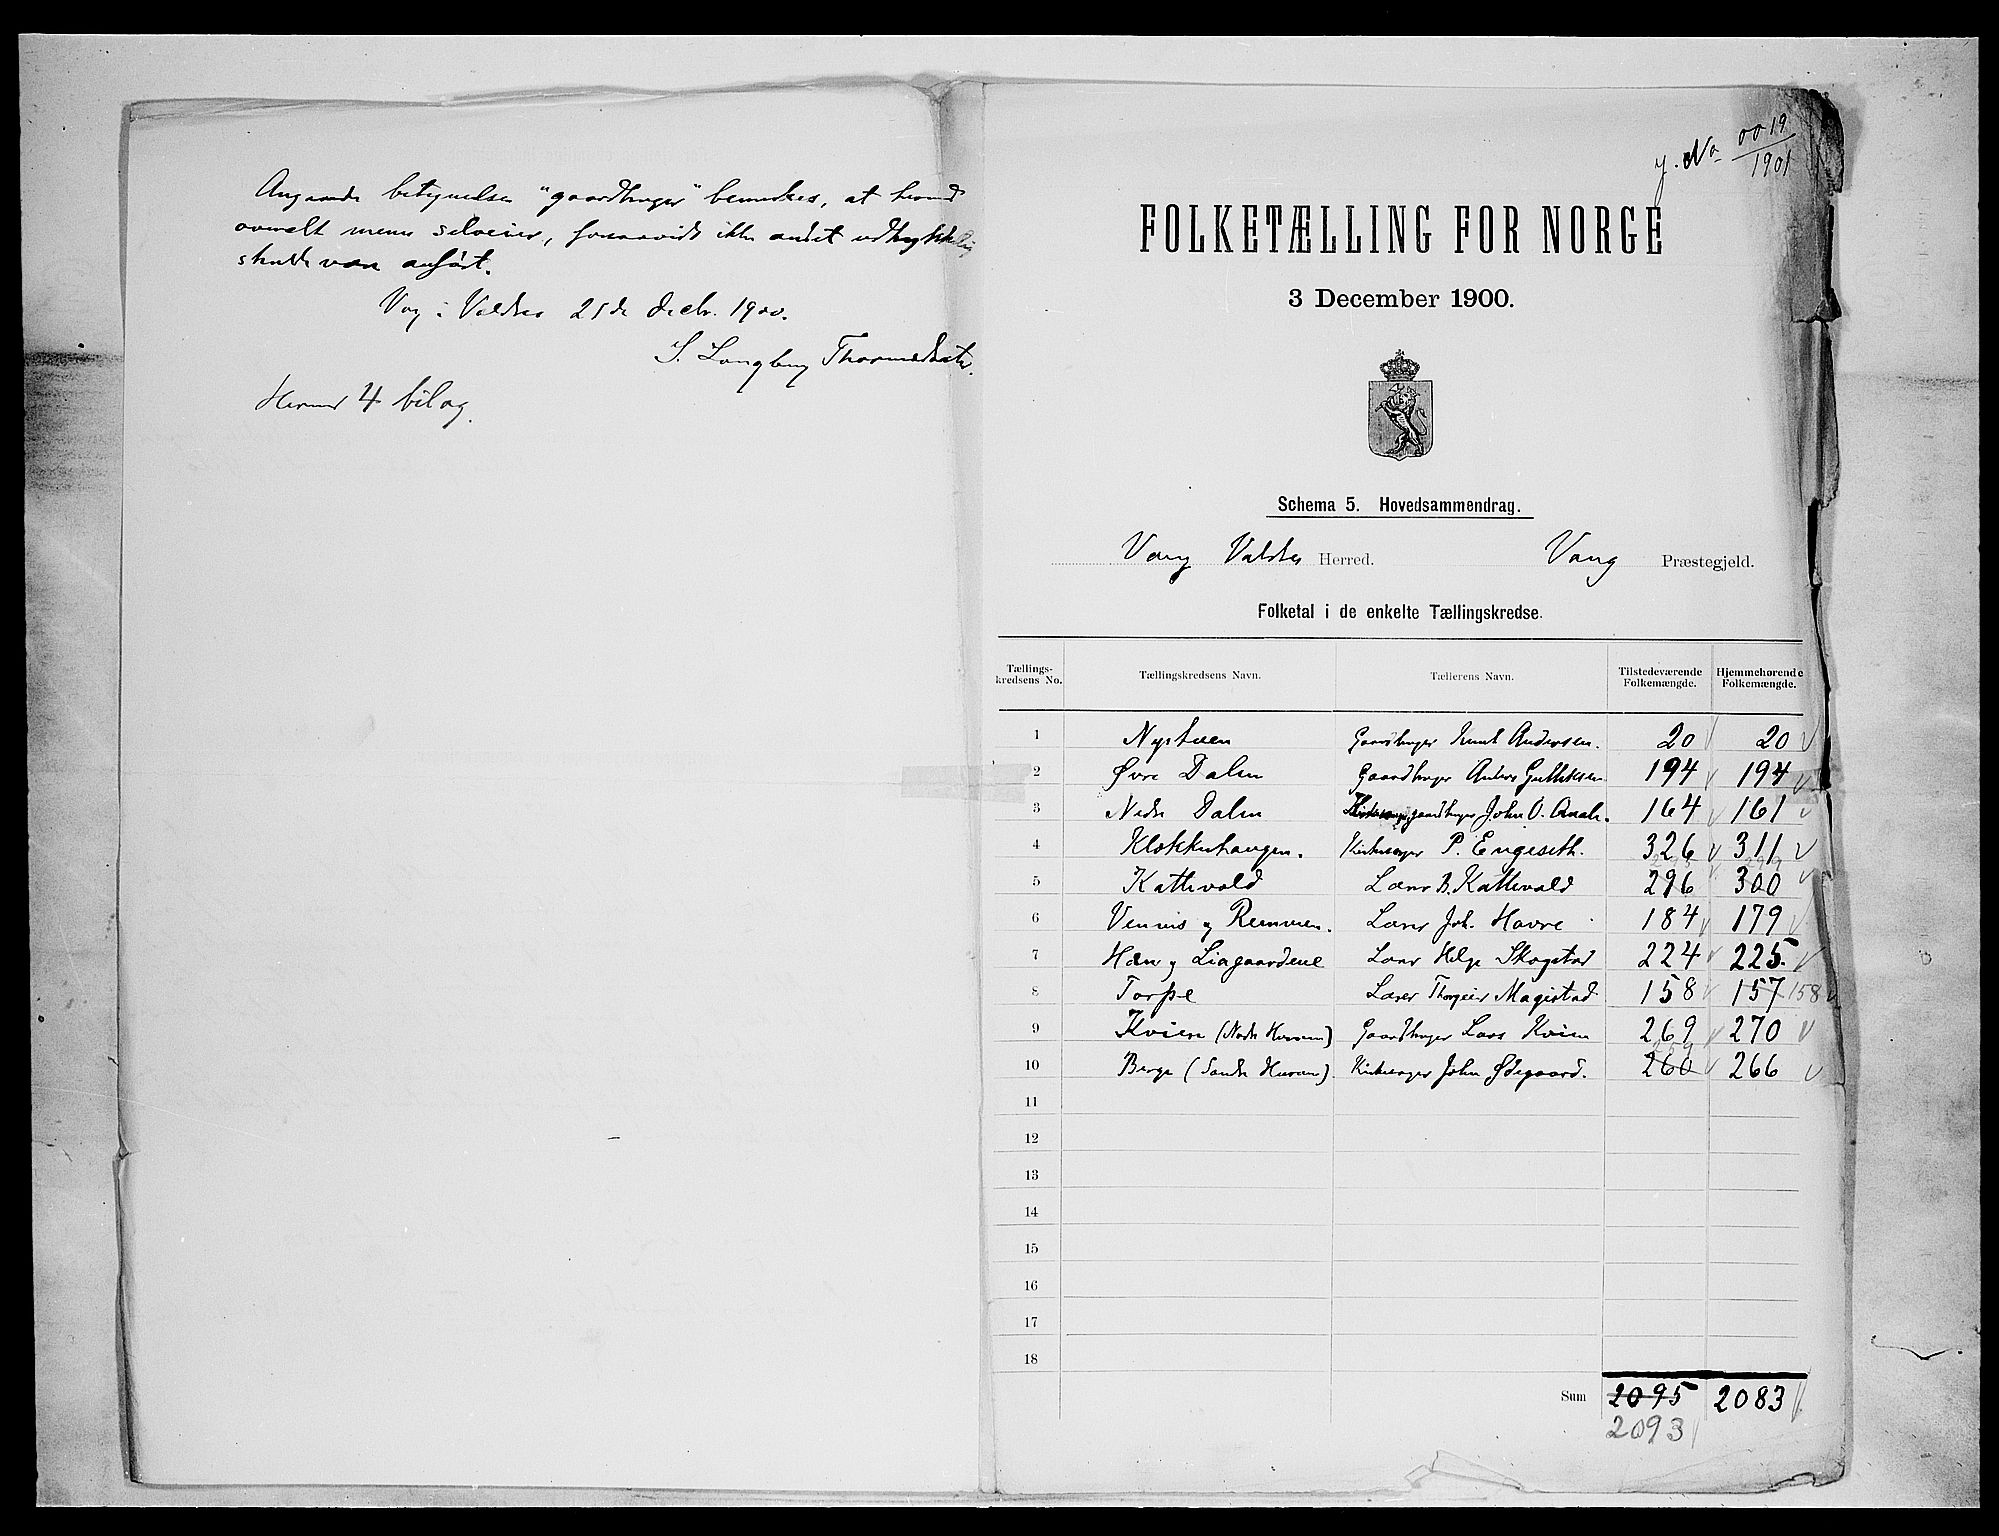 Angaaende betegnelsen "gaardbruger" bemerkes, at herved
overalt menes selveier, forsaavidt ikke andet udtrykkelig
skulde være anført.
Vang i Valdres 21de decbr. 1900.
S. Langberg Thormodsæter.
Hermed 4 bilag.
J. No 0019/1901
FOLKETÆLLING FOR NORGE
3 December 1900.
Schema 5. Hovedsammendrag.
Vang Valdres Herred. Vang Præstegjeld.
Folketal i de enkelte Tællingskredse.
Tællings-kredsens No. Tællingskredsens Navn. Tællerens Navn. Tilstedeværende Folkemængde. Hjemmehørende Folkemængde.
1 Nystuen Gaardbruger Knut Andersen. 20 20
2 Øvre Dalen Gaardbruger Anders Gulliksen 194 194
3 Nedre Dalen gaardbruger John O. 164 161
4 Klokkerhaugen. Kirkesanger P. Engeseth. 326 311
5 Kattevold Lærer B. Kattevold 296 300
6 Vennis og Remmen. Lærer Joh. Hovre 184 179
7 Hæn og Liagaardene Lærer Helge Skogstad 224 225
8 Torpe Lærer Thorgeir Magistad 158 157 158
9 Kvien (Nedre Hurum) Gaardbruger Lars Kvien 269 270
10 Berge (Søndre Hurum). Kirkesanger John Ødegaard. 259 260 266
11
12
13
14
15
16
17
18
Sum 2095 2083
2093